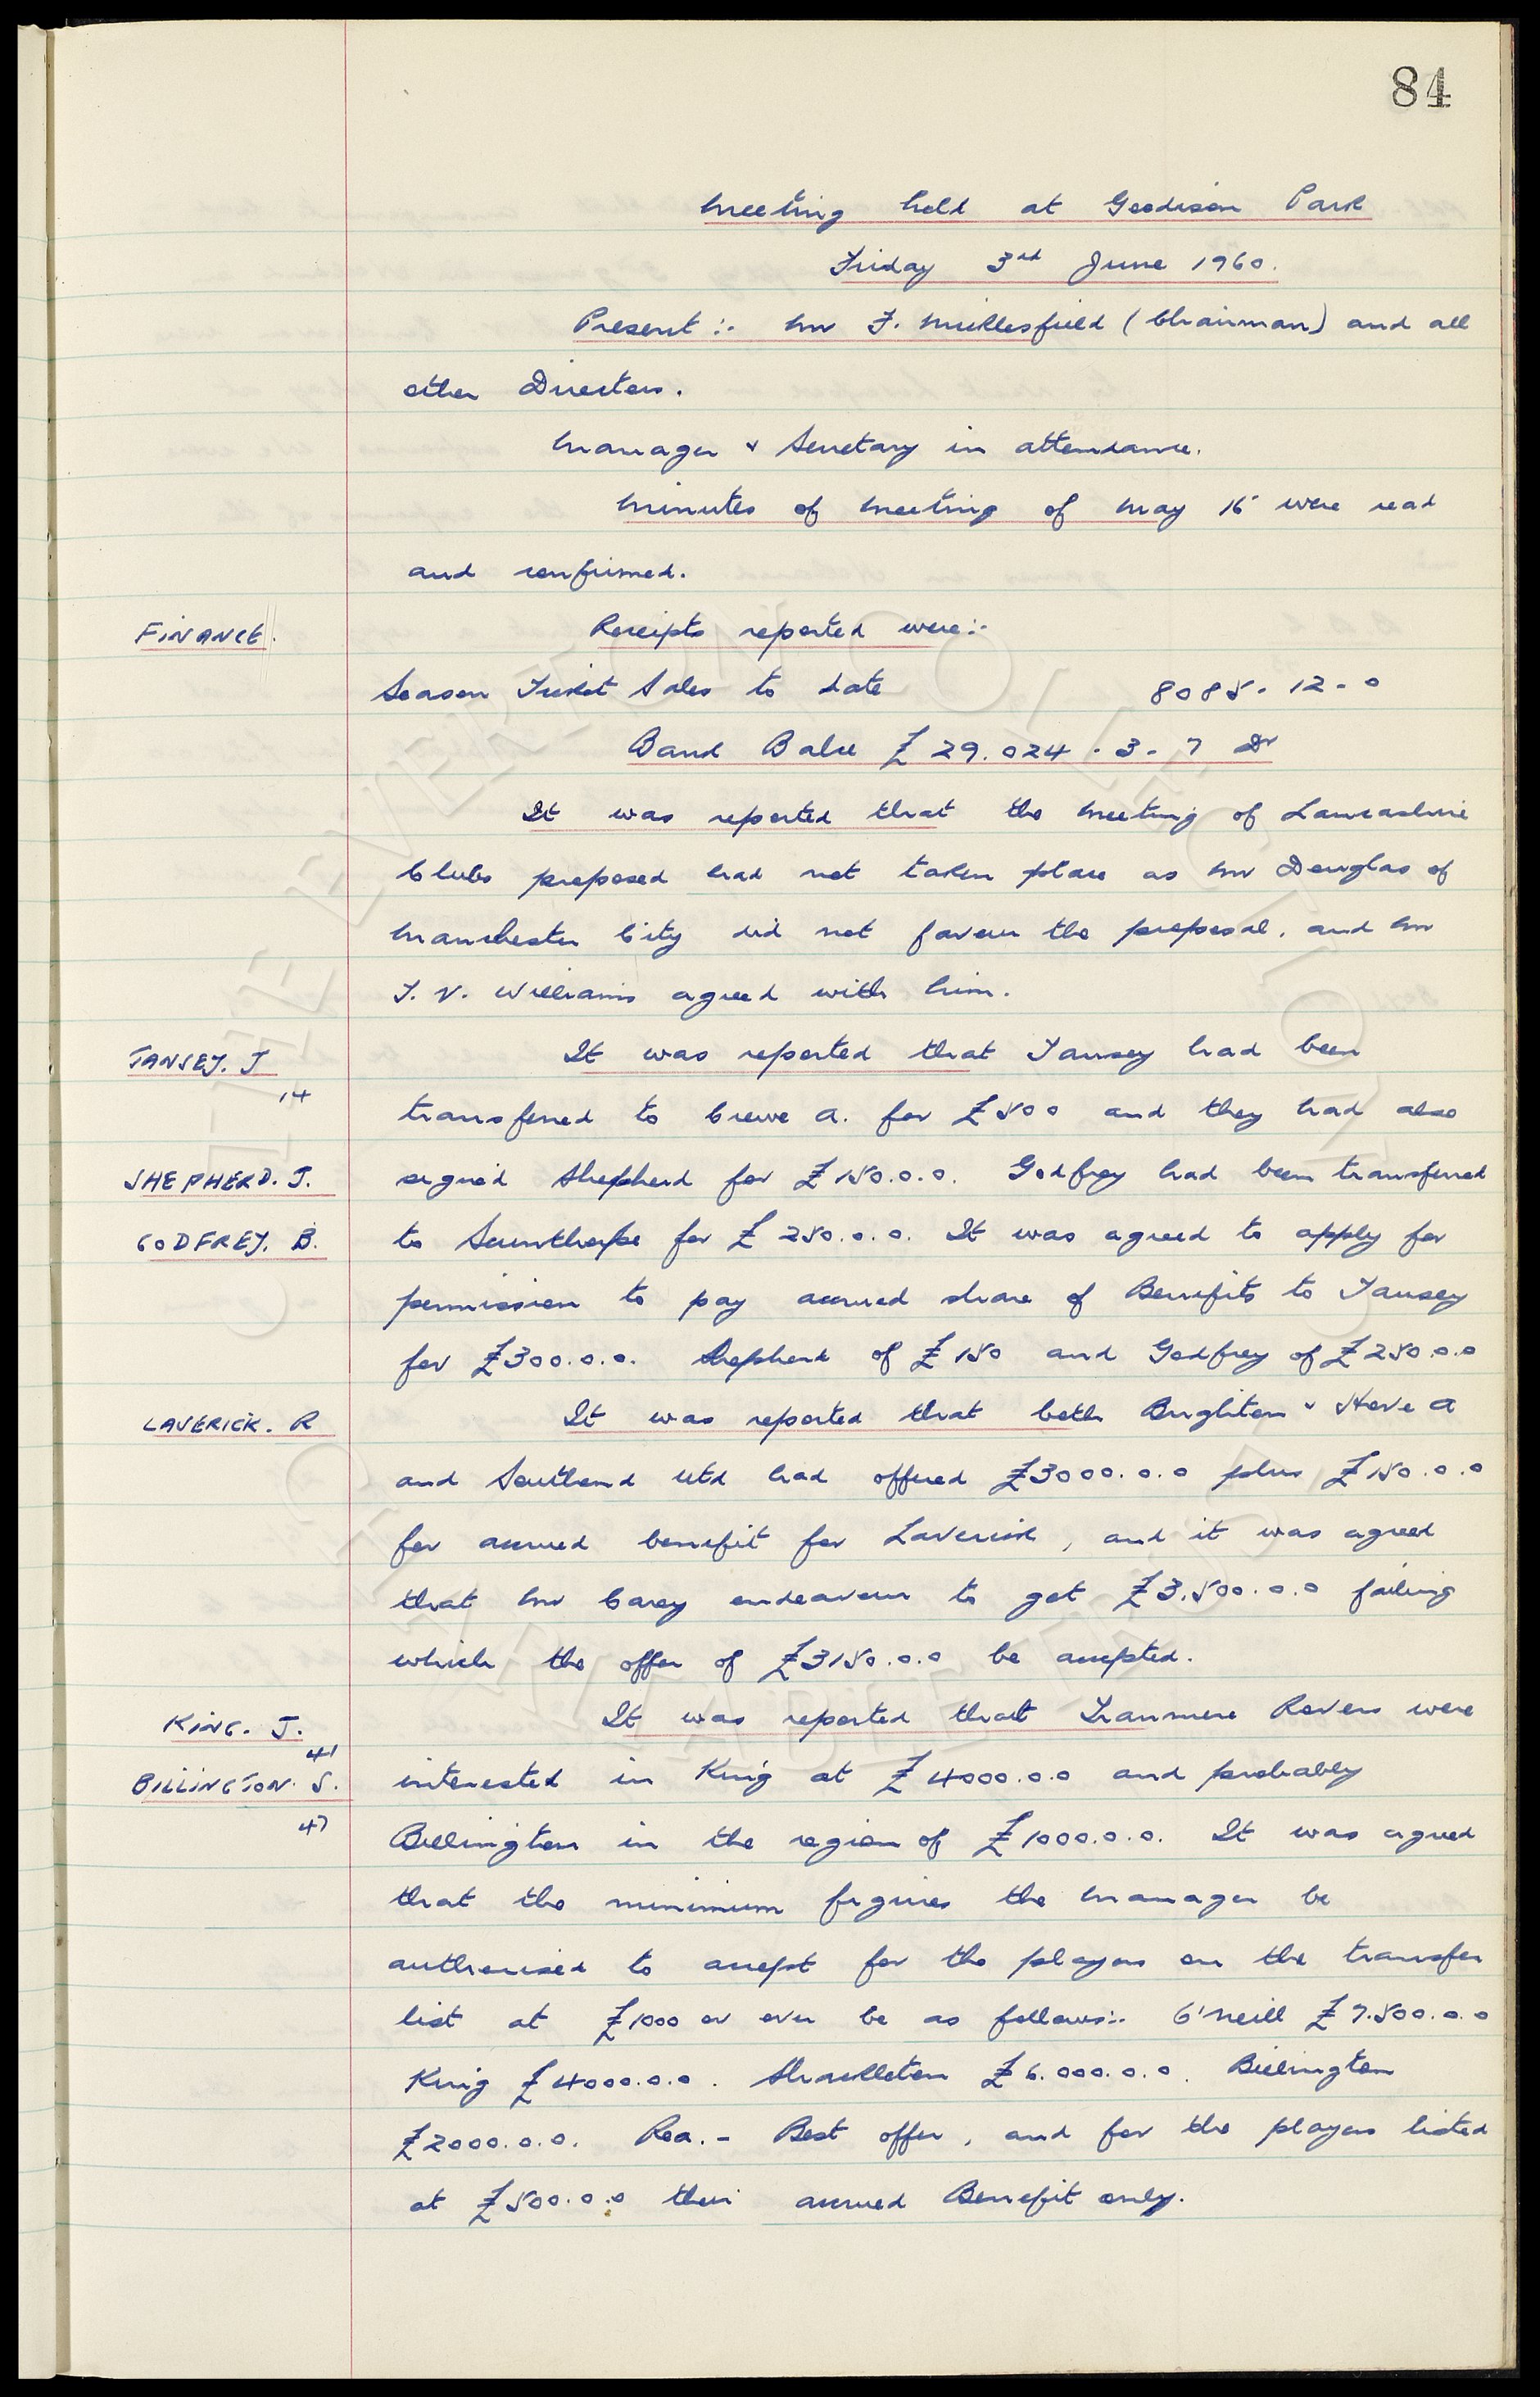 84
Meeting held at Goodison Park
Friday 3rd June 1960.
Present :- Mr F. Micklesfield (Chairman) and all
other Directors.
Manager & Secretary in attendance.
Minutes of meeting of May 16 were read
and confirmed.
FINANCE. Receipts reported were:-
Season Ticket Sales to date 8085. 12 - 0
Bank Balce £29.024 - 3 - 7 Dr
It was reported that the meeting of Lancashire
Clubs proposed had not taken place as Mr Douglas of
Manchester City did not favour the proposal, and Mr
T. V. Williams agreed with him.
TANSEY. J It was reported that Tansey had been
14
transferred to Crewe A. for £500 and they had also
SHEPHERD. J. signed Shepherd for £150.0.0. Godfrey had been transferred
GODFREY. B. to Scunthorpe for £250.0.0. It was agreed to apply for
permission to pay accrued share of Benefits to Tansey
for £300.0.0. Shepherd of £150 and Godfrey of £250.0.0
LAVERICK. R It was reported that both Brighton & Hove A
and Southend Utd had offered £3000.0.0 plus £150.0.0
for accrued benefit for Laverick, and it was agreed
that Mr Carey endeavour to get £3.500.0.0 failing
which the offer of £3150.0.0 be accepted.
KING. J. It was reported that Tranmere Rovers were
41
BILLINGTON. S. interested in King at £4000.0.0 and probably
47
Billington in the region of £1000.0.0. It was agreed
that the minimum figures the Manager be
authorised to accept for the players on the transfer
list at £1000 or over be as follows:- O'Neill £7.500.0.0
King £4000.0.0. Shackleton £6.000.0.0. Billington
£2000.0.0. Rea. - Best offer, and for the players listed
at £500.0.0 their accrued Benefit only.
THE EVERTON COLLECTION